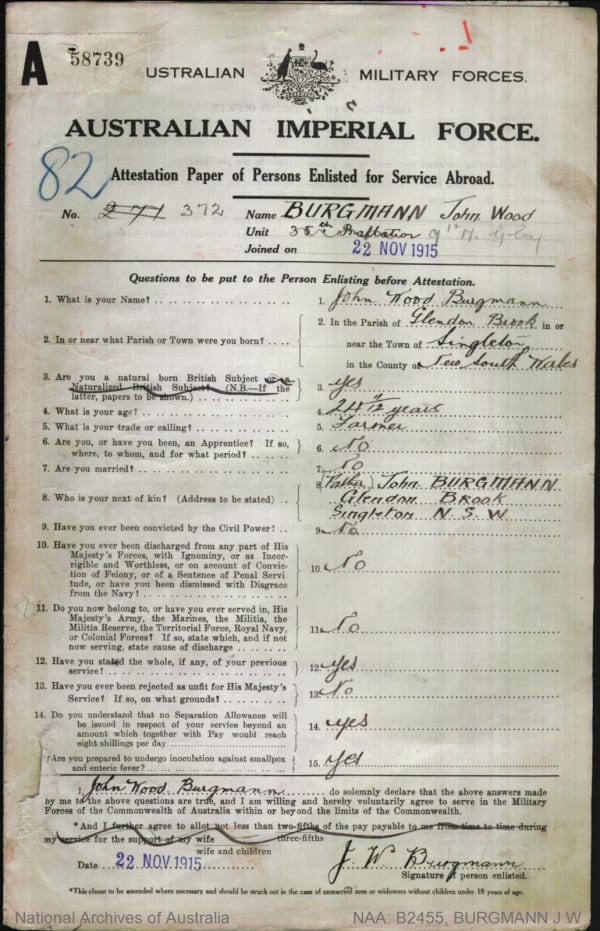 A 58739
AUSTRALIAN MILITARY FORCES.
AUSTRALIAN IMPERIAL FORCE.
82
Attestation Paper of Persons Enlisted for Service Abroad.
No. 271 372 Name BURGMANN John Wood
Unit 35th Battalion
Joined on 22 NOV 1915
Questions to be put to the Person Enlisting before Attestation.
1. What is your Name? 1. John Wood Burgmann
2. In or near what Parish or Town were you born? 2. In the Parish of Glendon Brook in or
near the Town of Singleton
in the County of New South Wales
3. Are you a natural born British Subject or a
Naturalized British Subject? (N.B.—If the
latter, papers to be shown.) 3. Yes
4. What is your age? 4. 24 7/12 years
5. What is your trade or calling? 5. Farmer
6. Are you, or have you been, an Apprentice? If so,
where, to whom, and for what period? 6. No
7. Are you married? 7. No
8. Who is your next of kin? (Address to be stated) 8. (Father) John BURGMANN
Glendon BROOK
Singleton N.S.W
9. Have you ever been convicted by the Civil Power? 9. No
10. Have you ever been discharged from any part of His
Majesty's Forces, with Ignominy, or as Incor-
rigible and Worthless, or on account of Convic-
tion of Felony, or of a Sentence of Penal Servi-
tude, or have you been dismissed with Disgrace
from the Navy? 10. No
11. Do you now belong to, or have you ever served in, His
Majesty's Army, the Marines, the Militia, the
Militia Reserve, the Territorial Force, Royal Navy,
or Colonial Forces? If so, state which, and if not
now serving, state cause of discharge 11. No
12. Have you stated the whole, if any, of your previous
service? 12. Yes
13. Have you ever been rejected as unfit for His Majesty's
Service? If so, on what grounds? 13. No
14. Do you understand that no Separation Allowance will
be issued in respect of your service beyond an
amount which together with Pay would reach
eight shillings per day 14. Yes
Are you prepared to undergo inoculation against smallpox
and enteric fever? 15. Yes
I, John Wood Burgmann do solemnly declare that the above answers made
by me to the above questions are true, and I am willing and hereby voluntarily agree to serve in the Military
Forces of the Commonwealth of Australia within or beyond the limits of the Commonwealth.
*And I further agree to allot not less than two-fifths of the pay payable to me from time to time during
three-fifths
my service for the support of my wife
wife and children
Date 22 NOV 1915 J. W Burgmann
Signature of person enlisted.
*This clause to be amended where necessary and should be struck out in the case of unmarried men or widowers without children under 18 years of age.
National Archives of Australia NAA: B2455, BURGMANN J W